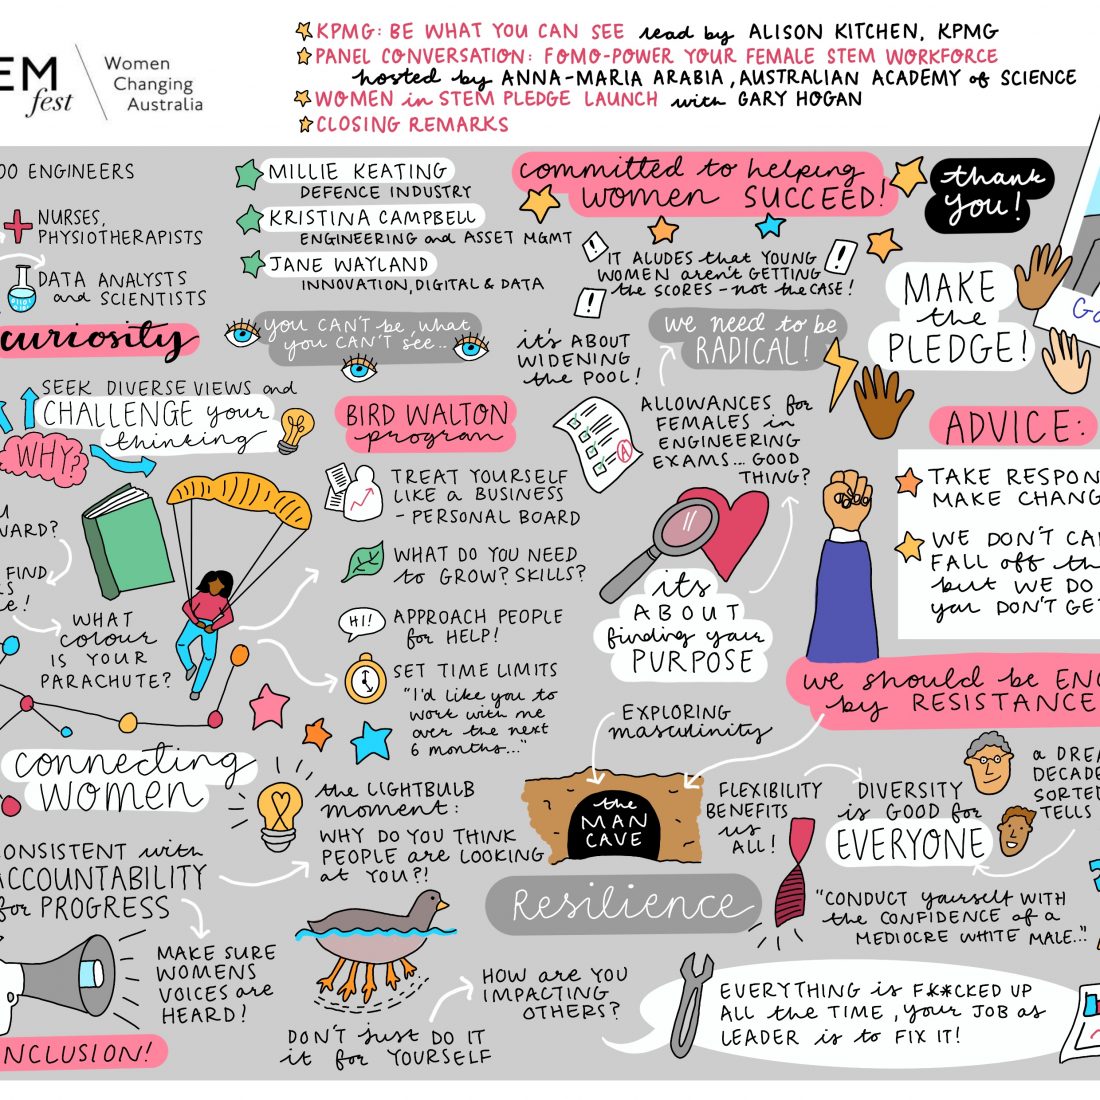 EM
fest
Women
Changing
Australia
KPMG: BE WHAT YOU CAN SEE read by ALISON KITCHEN, KPMG
PANEL CONVERSATION: FOMO-POWER YOUR FEMALE STEM WORKFORCE
hosted by ANNA-MARIA ARABIA, AUSTRALIAN ACADEMY of SCIENCE
WOMEN in STEM PLEDGE LAUNCH with GARY HOGAN
CLOSING REMARKS
00 ENGINEERS
NURSES,
PHYSIOTHERAPISTS
DATA ANALYSTS
and SCIENTISTS
curiosity
SEEK DIVERSE VIEWS and
CHALLENGE your
thinking
WHY?
WARD?
FIND
WHAT
colour
IS YOUR
PARACHUTE?
connecting
WOMEN
ONSISTENT with
ACCOUNTABILITY
for PROGRESS
MAKE SURE
WOMENS
VOICES are
HEARD!
NCLUSION!
MILLIE KEATING
DEFENCE INDUSTRY
KRISTINA CAMPBELL
ENGINEERING and ASSET MGMT
JANE WAYLAND
INNOVATION, DIGITAL & DATA
you CAN'T be, what
you CAN'T see..
BIRD WALTON
program
TREAT YOURSELF
LIKE a BUSINESS
- PERSONAL BOARD
WHAT DO YOU NEED
to GROW? SKILLS?
HI!
APPROACH PEOPLE
for HELP!
SET TIME LIMITS
"I'd like you to
work with me
over the next
6 months..."
the LIGHTBULB
moment:
WHY DO YOU THINK
PEOPLE are LOOKING
at YOU?!
DON'T just DO IT
it for YOURSELF
HOW are YOU
IMPACTING
OTHERS?
committed to helping
WOMEN SUCCEED!
IT ALUDES that YOUNG
WOMEN aren't GETTING
the SCORES - not the CASE!
it's ABOUT
WIDENING
the POOL!
we need to be
RADICAL!
A
ALLOWANCES for
FEMALES in
ENGINEERING
EXAMS... GOOD
THING?
its
ABOUT
finding your
PURPOSE
EXPLORING
masculinity
the
MAN
CAVE
Resilience
thank
you!
MAKE
the
PLEDGE!
Ga
ADVICE:
TAKE RESPON
MAKE CHANG
WE DON'T CA
FALL off th
but WE DO
you DON'T GET
we should be EN
by RESISTANCE
FLEXIBILITY
BENEFITS
us
ALL!
DIVERSITY
is GOOD for
EVERYONE
a DREA
DECADE
SORTED
TELLS
"CONDUCT yourself WITH
the CONFIDENCE of a
MEDIOCRE WHITE MALE..."
EVERYTHING is F**CKED UP
ALL the TIME, your JOB as
LEADER is to FIX IT!